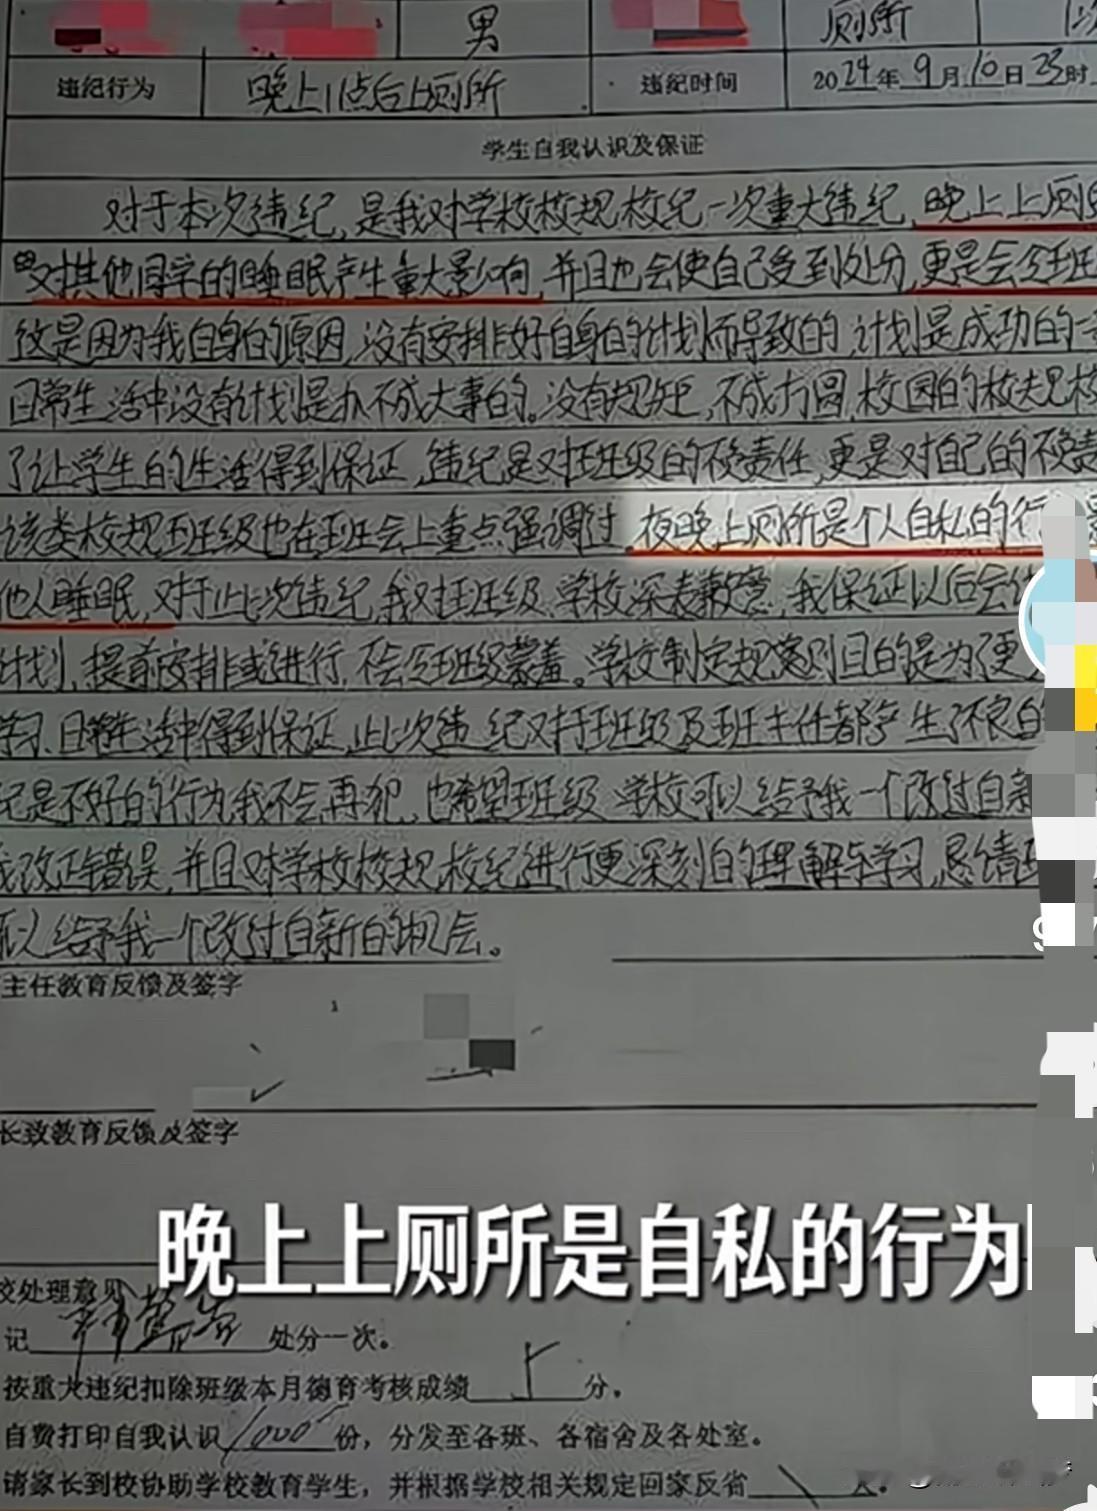 男 厕所
违纪行为 晚上11点后上厕所 违纪时间 2024年9月10日23时
学生自我认识及保证
对于本次违纪，是我对学校校规校纪一次重大违纪，晚上上厕
对其他同学的睡眠产生重大影响，并且也会使自己受到处分，更是会令班
这是因为我自身的原因，没有安排好自身的计划而导致的，计划是成功的
日常生活中没有计划是办不成大事的。没有规矩，不成方圆，校园的校规校
了让学生的生活得到保证，违纪是对班级的不负责任，更是对自己的不负责
该类校规班级也在班会上重点强调过，夜晚上厕所是个人自私的行
他人睡眠，对于此次违纪，我对班级、学校深表歉意，我保证以后会
计划，提前安排或进行，不会令班级蒙羞。学校制定规章则目的是为了更
学习、日常生活中得到保证，此次违纪对于班级及班主任都产生了不良的
纪是不好的行为，我不会再犯，也希望班级、学校可以给予我一个改过自新
我改正错误，并且对学校校规、校纪进行更深刻的理解与学习，恳请
可以给予我一个改过自新的机会。
主任教育反馈及签字
长致教育反馈及签字
晚上上厕所是自私的行为
校处理意见
记 严重警告 处分一次。
按重大违纪扣除班级本月德育考核成绩 5 分。
自费打印自我认识 1000 份，分发至各班、各宿舍及各处室。
请家长到校协助学校教育学生，并根据学校相关规定回家反省 天。